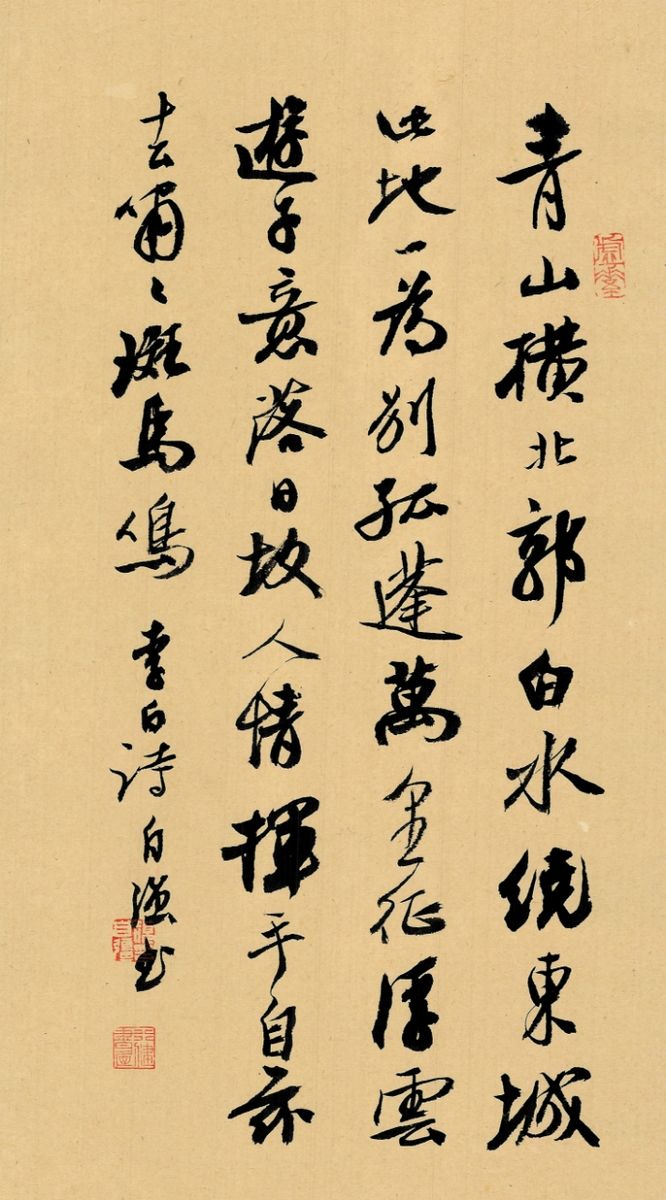 青山橫北郭白水繞東城
此地一為別孤蓬萬里征浮雲
遊子意落日故人情揮手自茲
去嘯々班馬鳴 李白詩 自強书